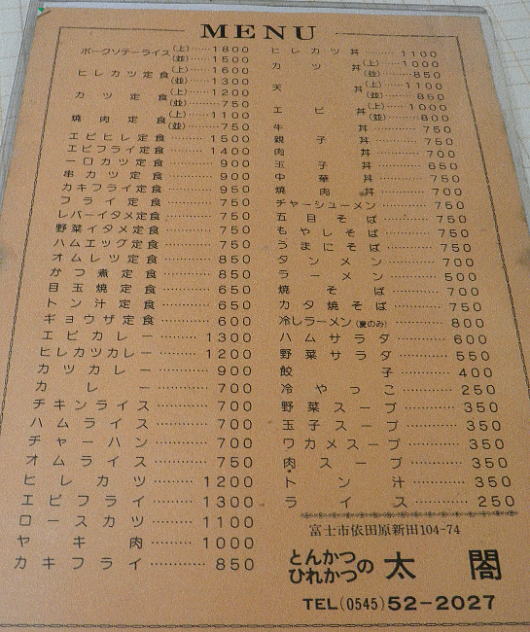 MENU
ポークソテーライス(上)……1800
(並)……1500
ヒレカツ定食(上)……1600
(並)……1300
カツ定食(上)……1200
(並)……750
焼肉定食(上)……1100
(並)……750
エビヒレ定食……1500
エビフライ定食……1400
一口カツ定食……900
串カツ定食……900
カキフライ定食……950
フライ定食……750
レバーイタメ定食……750
野菜イタメ定食……750
ハムエッグ定食……750
オムレツ定食……850
かつ煮定食……850
目玉焼定食……650
トン汁定食……650
ギョウザ定食……600
エビカレー……1300
ヒレカツカレー……1200
カツカレー……900
カレー……700
チキンライス……700
ハムライス……700
チャーハン……700
オムライス……750
ヒレカツ……1200
エビフライ……1300
ロースカツ……1100
ヤキ肉……1000
カキフライ……850
ヒレカツ丼……1100
カツ丼(上)……1000
(並)……850
天丼(上)……1100
(並)……850
エビ丼(上)……1000
(並)……800
牛丼……750
親子丼……750
肉丼……700
玉子丼……650
中華丼……750
焼肉丼……700
チャーシューメン……750
五目そば……750
もやしそば……750
うまにそば……750
タンメン……700
ラーメン……500
焼そば……700
カタ焼そば……750
冷しラーメン(夏のみ)……800
ハムサラダ……600
野菜サラダ……550
餃子……400
冷やっこ……250
野菜スープ……350
玉子スープ……350
ワカメスープ……350
肉スープ……350
トン汁……350
ライス……250
富士市依田原新田104-74
とんかつ
ひれかつの 太閤
TEL(0545)52-2027